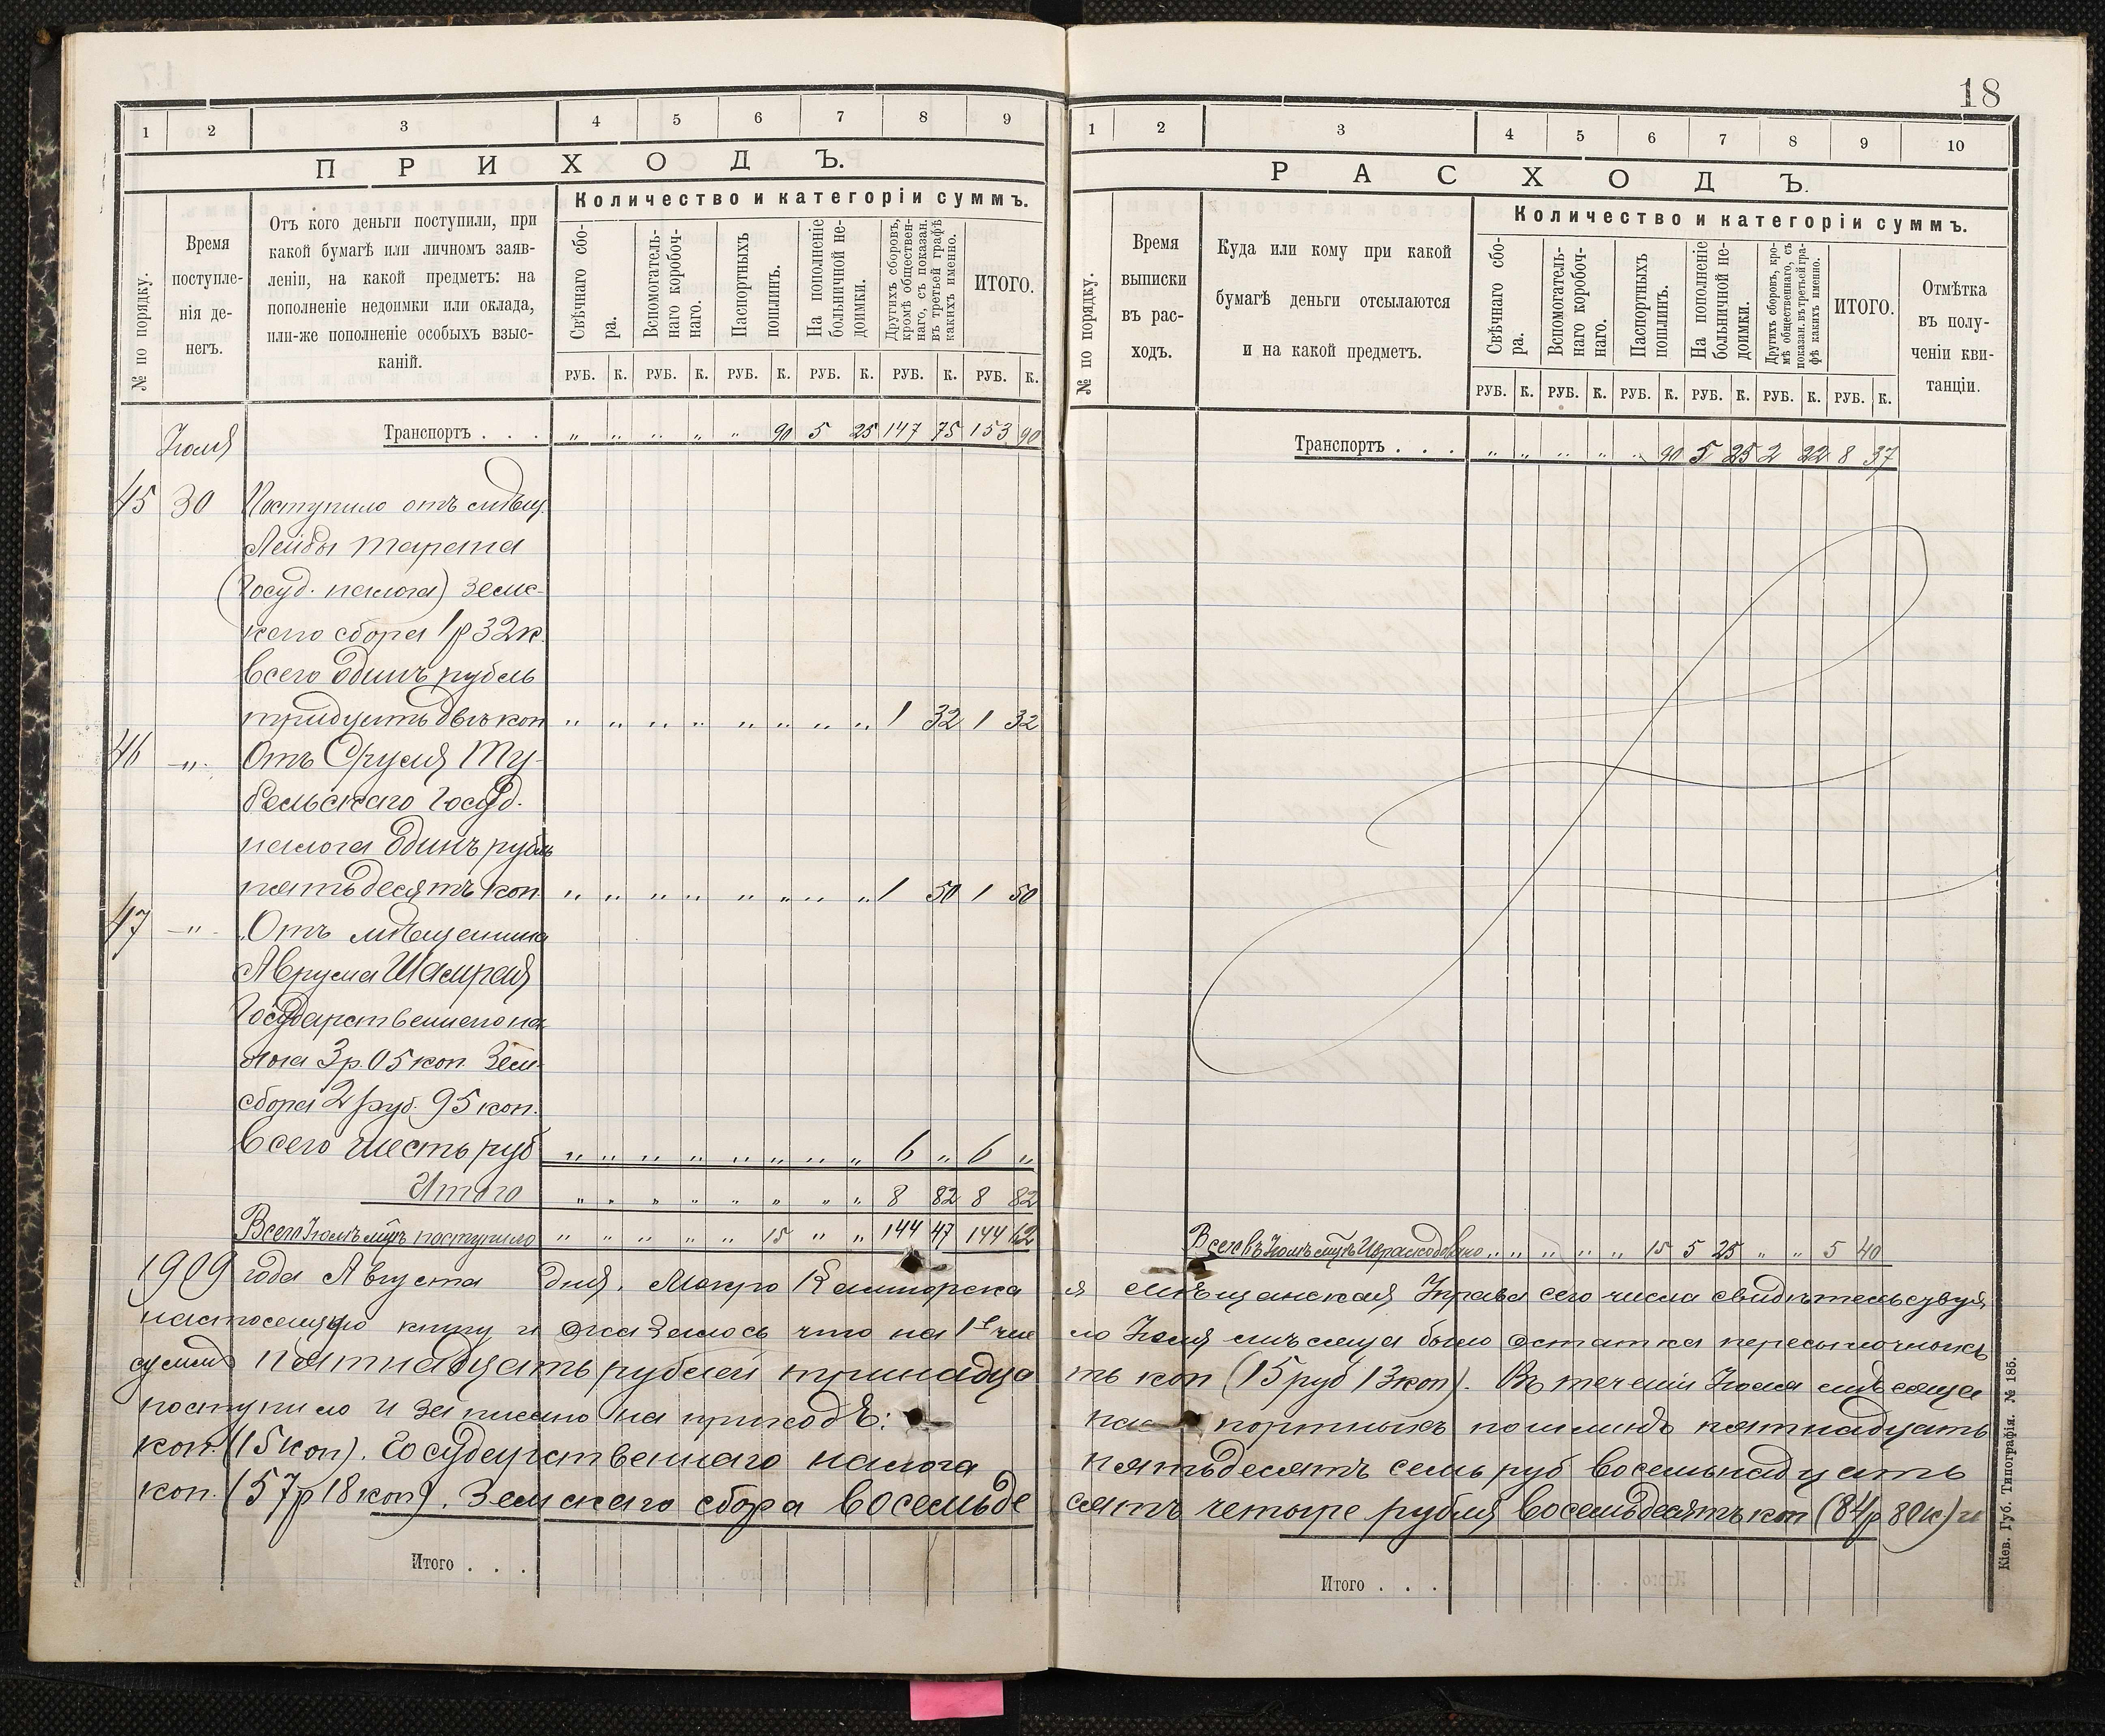 18
1 2 3 4 5 6 7 8 9
ПРИХОДЪ.
№ по порядку.
Время
поступле-
нія де-
негъ.
Отъ кого деньги поступили, при
какой бумагѣ или личномъ заяв-
леніи, на какой предметъ: на
пополненіе недоимки или оклада,
или-же пополненіе особыхъ взыс-
каній.
Количество и категоріи суммъ.
Свѣчнаго сбо-
ра.
Вспомогатель-
наго коробоч-
наго.
Паспортныхъ
пошлинъ.
На пополненіе
больничной не-
доимки.
Другихъ сборовъ,
кромѣ обществен-
наго, съ показан.
въ третьей графѣ
какихъ именно.
ИТОГО.
РУБ. К. РУБ. К. РУБ. К. РУБ. К. РУБ. К. РУБ. К.
Транспортъ . . . „ „ „ „ „ 90 5 25 147 75 153 90
Іюля
45 30 Поступило отъ мѣщ.
Лейбы
(Госуд. налога) земс-
каго сбора 1р 32к.
всего одинъ рубль
тридцать двѣ коп „ „ „ „ „ „ „ „ 1 32 1 32
46 „ Отъ Сруля Ту-
бельскаго Госуд.
налога одинъ рубль
пятьдесятъ коп. „ „ „ „ „ „ „ „ 1 50 1 50
47 „ Отъ мѣщанина
Аврума
Государственнаго на
лога 3р. 05 коп. Зем.
сбора 2 руб. 95 коп.
всего шесть руб „ „ „ „ „ „ „ „ 6 „ 6 „
Итого „ „ „ „ „ „ „ „ 8 82 8 82
Всего Іюлѣ мцѣ поступило „ „ „ „ „ 15 „ „ 144 47 144 62
1 2 3 4 5 6 7 8 9 10
РАСХОДЪ.
№ по порядку.
Время
выписки
въ рас-
ходъ.
Куда или кому при какой
бумагѣ деньги отсылаются
и на какой предметъ.
Количество и категоріи суммъ.
Свѣчнаго сбо-
ра.
Вспомогатель-
наго коробоч-
наго.
Паспортныхъ
пошлинъ.
На пополненіе
больничной не-
доимки.
Другихъ сборовъ, кро-
мѣ общественнаго, съ
показан. въ третьей гра-
фѣ какихъ именно.
ИТОГО.
Отмѣтка
въ полу-
ченіи кви-
танціи.
РУБ. К. РУБ. К. РУБ. К. РУБ. К. РУБ. К. РУБ. К.
Транспортъ . . . „ „ „ „ „ 90 5 25 2 22 8 37
Всего въ Іюлѣ мцѣ Израсходовано „ „ „ „ „ 15 5 25 „ „ 5 40
1909 года Августа дня. я мѣщанская Управа сего числа свидѣтельсвуя
настоящую книгу и оказалось что на 1е чис ло Іюля мѣсяца было остатка
суммъ пятнадцать рублей тринадца ть коп (15 руб 13 коп). Въ теченіи Іюля мѣсяца
поступило и записано на приходъ: пас портныхъ пошлинъ пятнадцать
коп. (15 коп). Государственнаго налога пятьдесятъ семь руб восемьнадцать
коп. (57р 18 коп). Земскаго сбора восемьде сятъ четыре рубля восемьдесятъ коп (84р 80к) и
Итого . . .
Итого . . .
Кіев. Губ. Типографія. № 185.